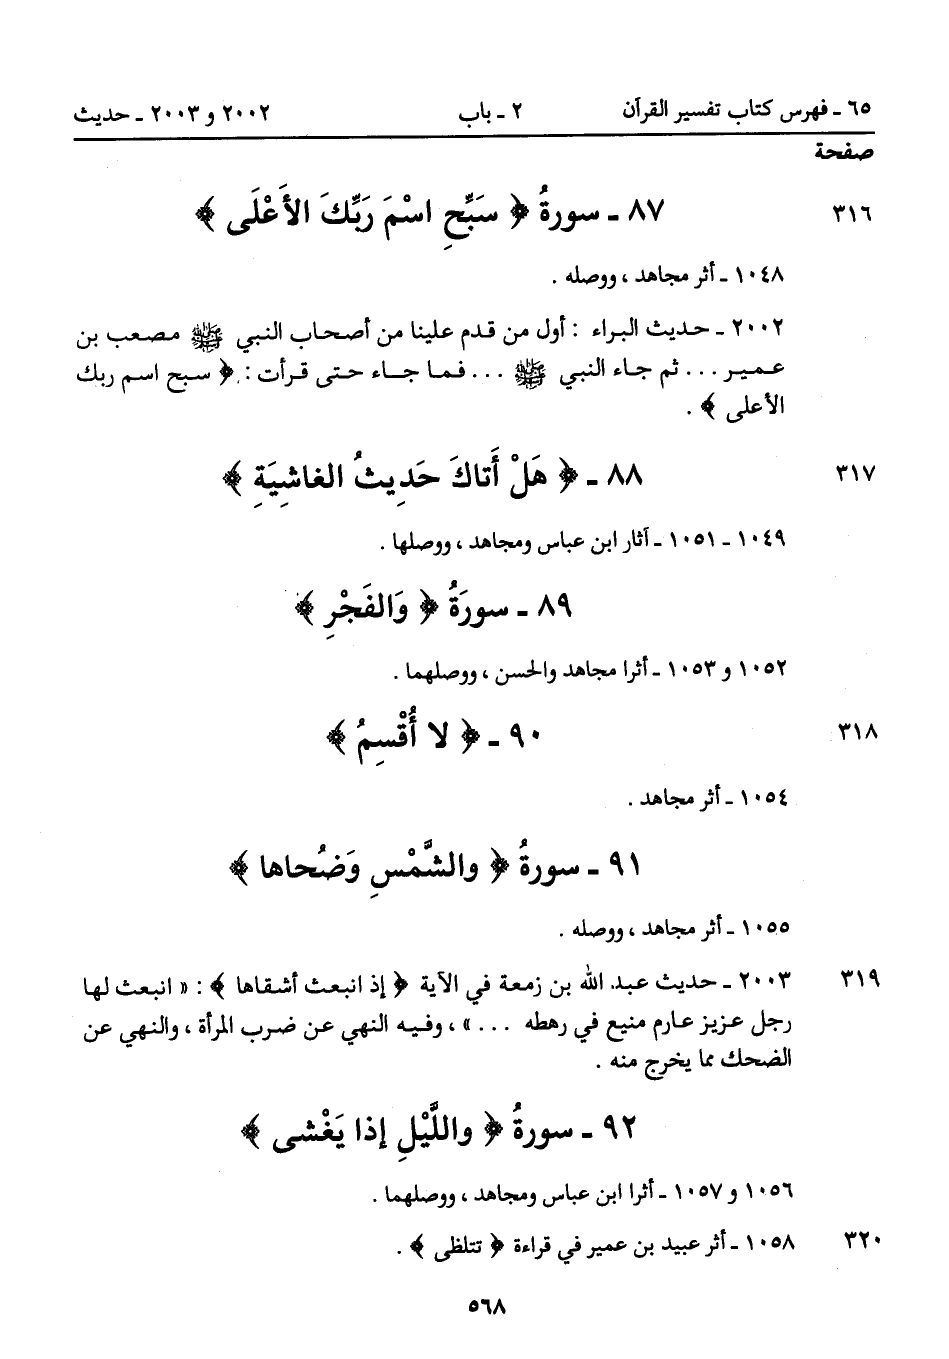 ٦٥ ـ فهرس كتاب تفسير القرآن ٢ ـ باب ٢٠٠٢ و ٢٠٠٣ ـ حديث
صفحة
٣١٦ ٨٧ ـ سورةُ ﴿ سَبِّحِ اسْمَ رَبِّكَ الأَعْلَى ﴾
١٠٤٨ ـ أثر مجاهد ، ووصله .
٢٠٠٢ ـ حديث البراء : أول من قدم علينا من أصحاب النبي ﷺ مصعب بن
عمير ... ثم جاء النبي ﷺ ... فما جاء حتى قرأت : ﴿ سبح اسم ربك
الأعلى ﴾ .
٣١٧ ٨٨ ـ ﴿ هَلْ أَتاكَ حَدِيثُ الغاشِيَةِ ﴾
١٠٤٩ ـ ١٠٥١ ـ آثار ابن عباس ومجاهد ، ووصلها .
٨٩ ـ سورَةُ ﴿ وَالفَجْرِ ﴾
١٠٥٢ و ١٠٥٣ ـ أثرا مجاهد والحسن ، ووصلهما .
٣١٨ ٩٠ ـ ﴿ لا أُقْسِمُ ﴾
١٠٥٤ ـ أثر مجاهد .
٩١ ـ سورةُ ﴿ والشَّمْسِ وَضُحاها ﴾
١٠٥٥ ـ أثر مجاهد ، ووصله .
٣١٩ ٢٠٠٣ ـ حديث عبد الله بن زمعة في الآية ﴿ إذ انبعث أشقاها ﴾ : « انبعث لها
رجل عزيز عارم منيع في رهطه ... » ، وفيه النهي عن ضرب المرأة ، والنهي عن
الضحك مما يخرج منه .
٩٢ ـ سورةُ ﴿ واللَّيْلِ إذا يَغْشى ﴾
١٠٥٦ و ١٠٥٧ ـ أثرا ابن عباس ومجاهد ، ووصلهما .
٣٢٠ ١٠٥٨ ـ أثر عبيد بن عمير في قراءة ﴿ تتلظى ﴾ .
٥٦٨